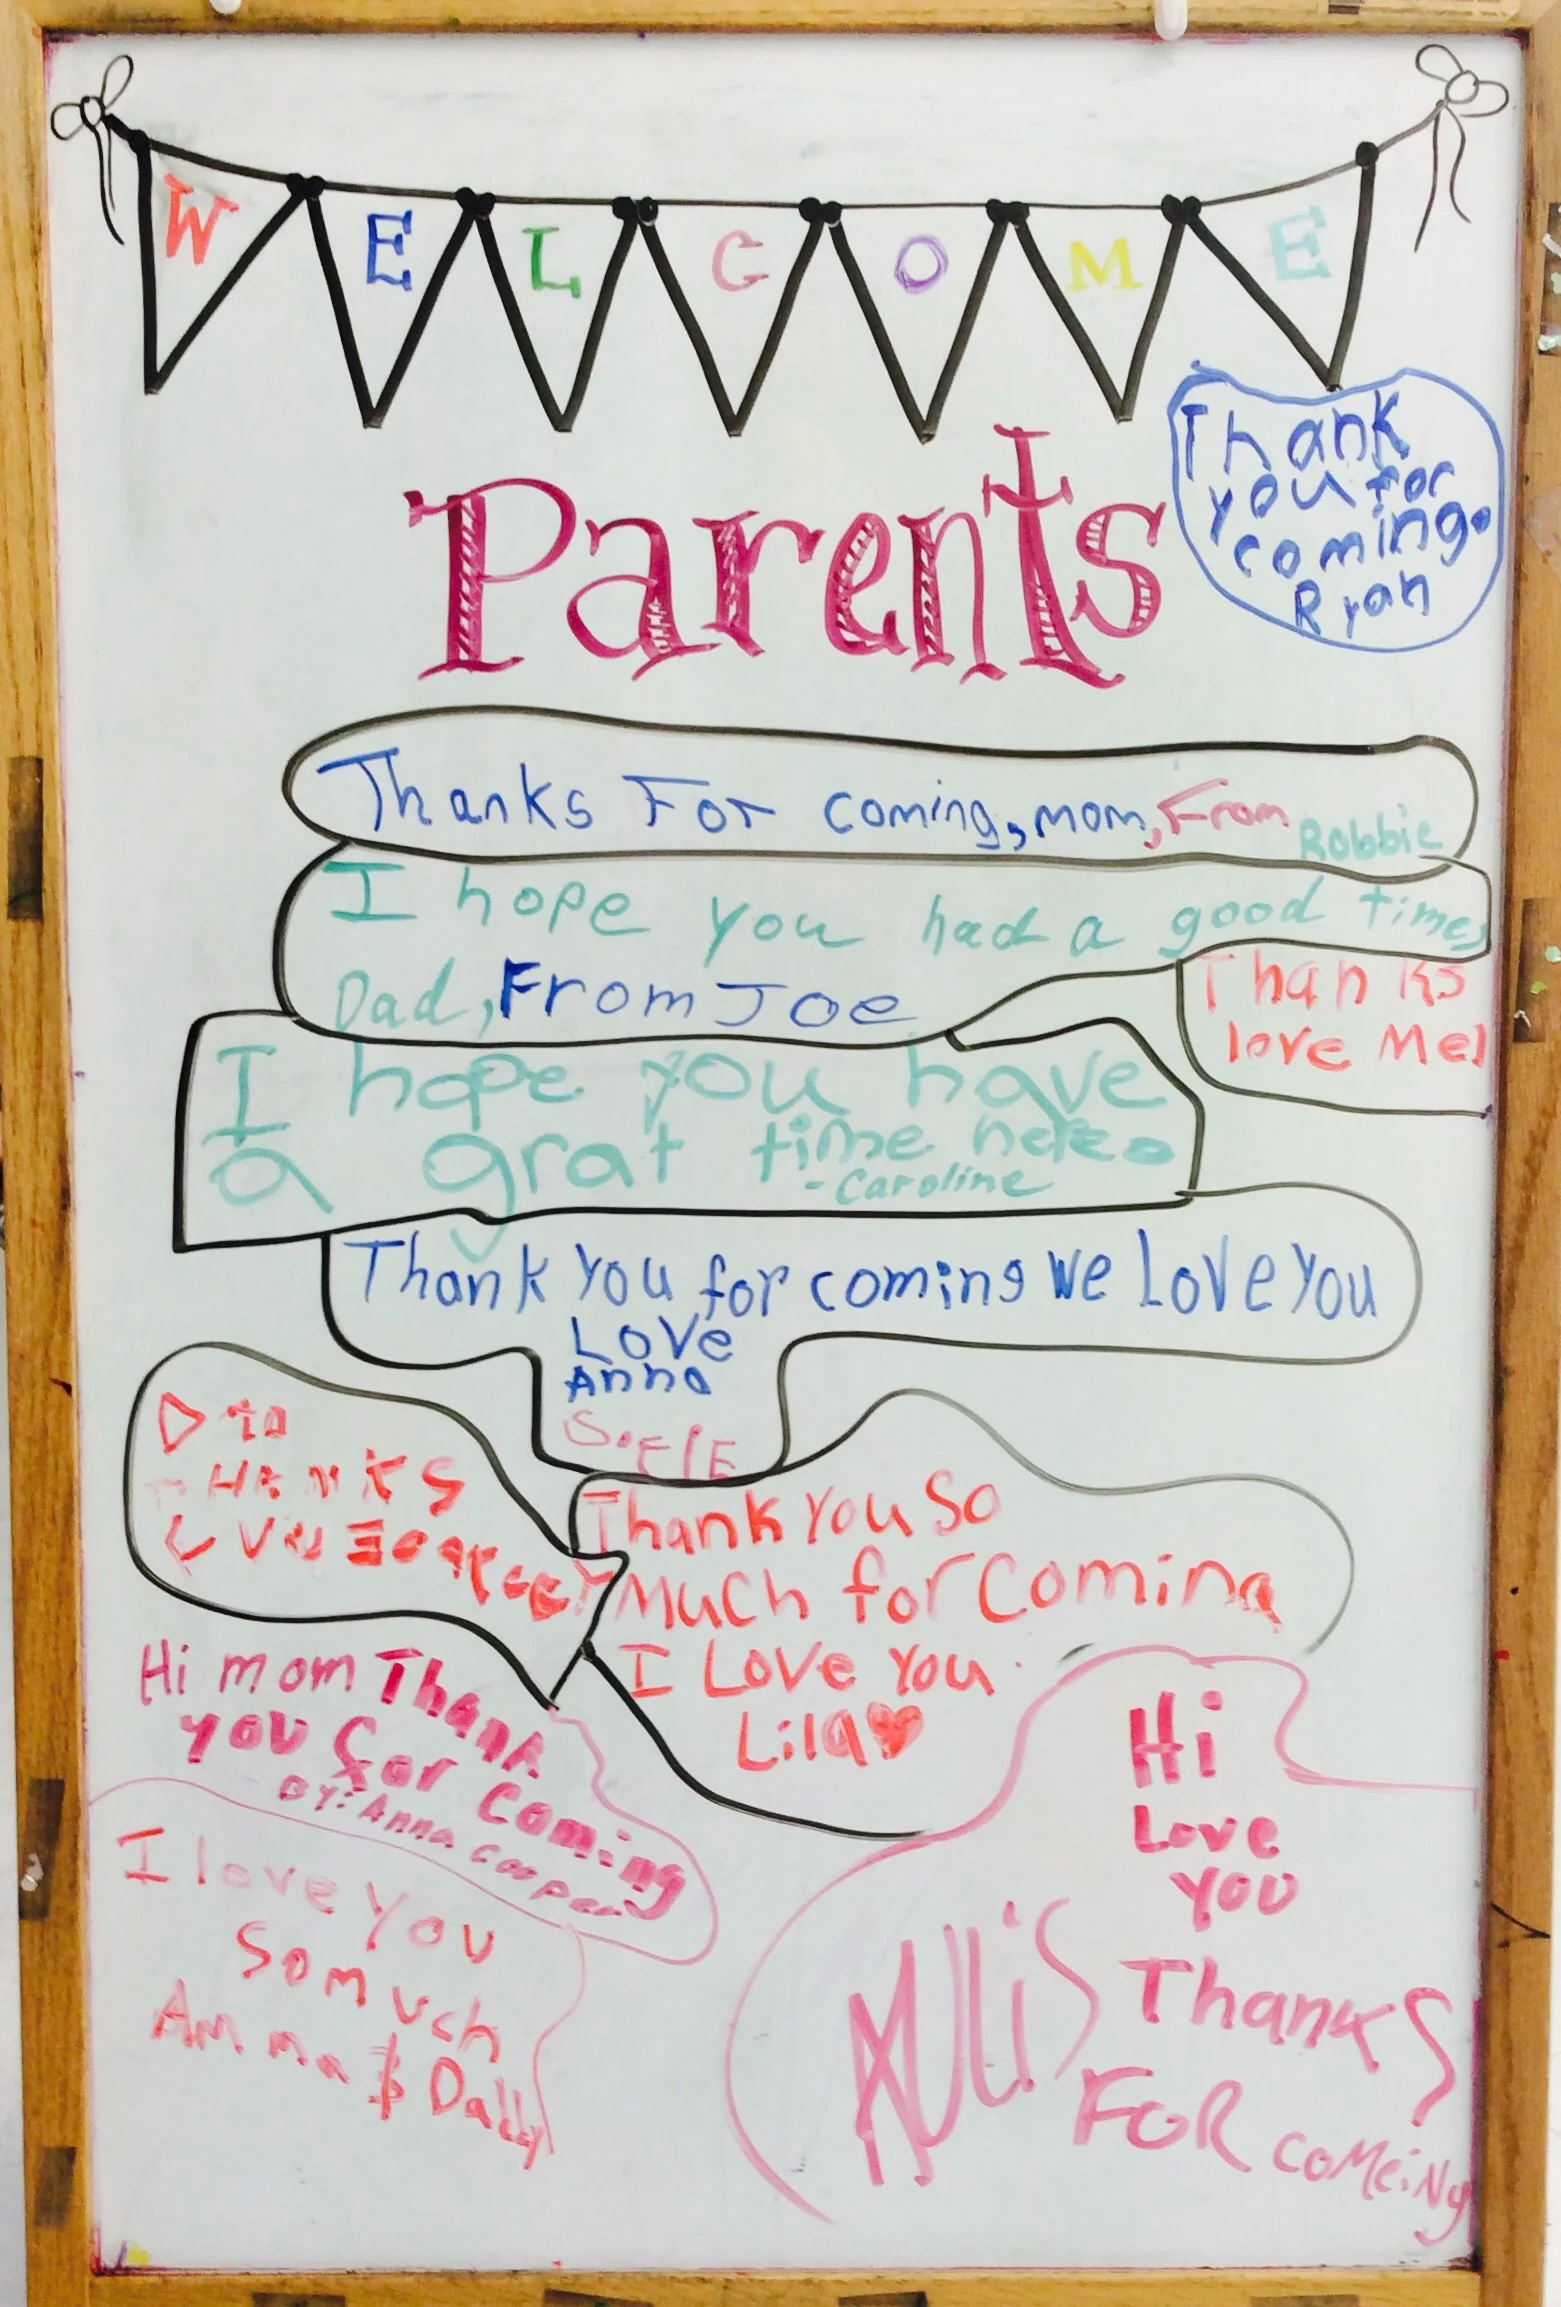 WELCOME
Parents
Thank
you for
coming.
Ryan
Thanks For coming, mom, From Robbie
I hope you had a good time,
Dad, From JOE
Thanks
love Mel
I hope you have
a grat time here.
- Caroline
Thank You for coming We Love You
Love
Anna
SofIE
THANKS
Thank You So
Much for Coming
I Love You
Lila
Hi mom Thank
you for Coming
BY: Anna Cooper
I love You
So much
Amma & Daddy
Hi
Love
you
Thanks
FOR
comeiNg